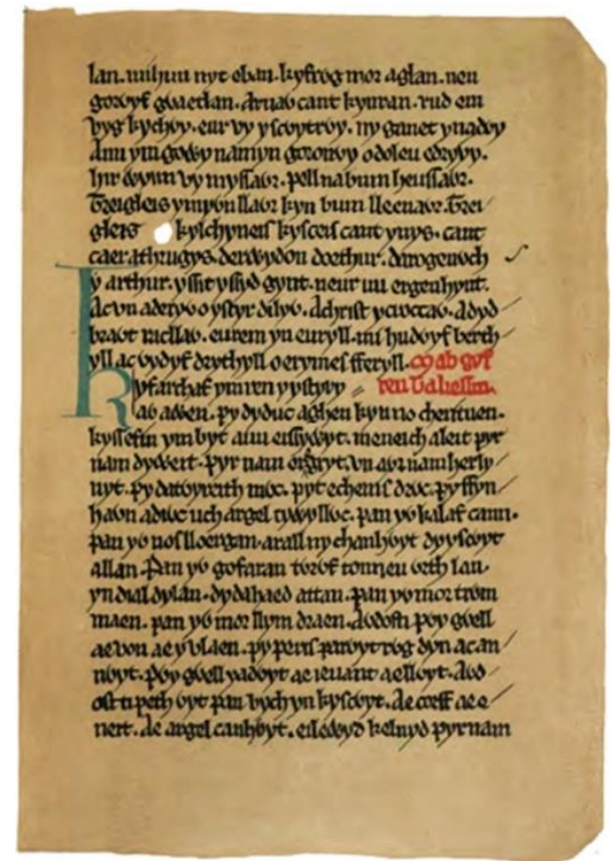 lan. mi hun nyt eban. kyfrog mor aglan. neu
goruyf gỽaetlan. Arnaỽ cant kynran. rud em
vyg kychỽy. eur vy yscỽytrỽy. ny ganet yn adỽy
Am ym goỽy namyn goronỽy o doleu edryỽy.
hir ỽynn vy myssaỽr. pell na bum heussaỽr.
Treigleis y myỽn llaỽr kyn bum lleenaỽr. Trei
gleis kylchyneis kysceis cant ynys. cant
caer athrugys. derỽydon doethur. darogenỽch
y arthur. yssit yssyd gynt. neur mi ergenhynt.
Ac vn aderyỽ o ystyr dilyỽ. A christ y croccaỽ. A dyd
braỽt racllaỽ. eurem yn euryll. mi hudỽyf berth
yll ac ỽydyf drythyll o erymes fferyll. Mab gyf
Kyfarchaf ym ren y ystyryỽ reu Taliessin.
aỽ aỽen. py dyduc aghen kyn no cherituen.
kyssefin ym byt a uu eissyỽyt. meneich aleit pyr
nam dyweit. pyr nam eisgyt. vn aỽr nam herly
nyt. py datỽyreith mỽc. pyt echenis drỽc. py ffyn
haỽn adiỽc uch argel tyỽyllỽc. pan yỽ kalaf cann.
pan yỽ nos lloergan. arall ny chanhỽyt dy yscỽyt
allan. Pan yỽ gofaran tỽrỽf tonneu ỽrth lan.
yn dial dylan. dydahaed attan. pan yỽ mor trỽm
maen. pan yỽ mor llym draen. Aỽdosti pỽy gỽell
ae von ae y vlaen. py peris parỽyt rỽg dyn ac an
nỽyt. pỽy gỽell y adỽyt ae ieuanc ae llỽyt. Aỽd
osti peth ỽyt pan vych yn kyscỽyt. Ae corff ae e
neit. Ae argel canhỽyt. eilewyd keluyd pyr nam